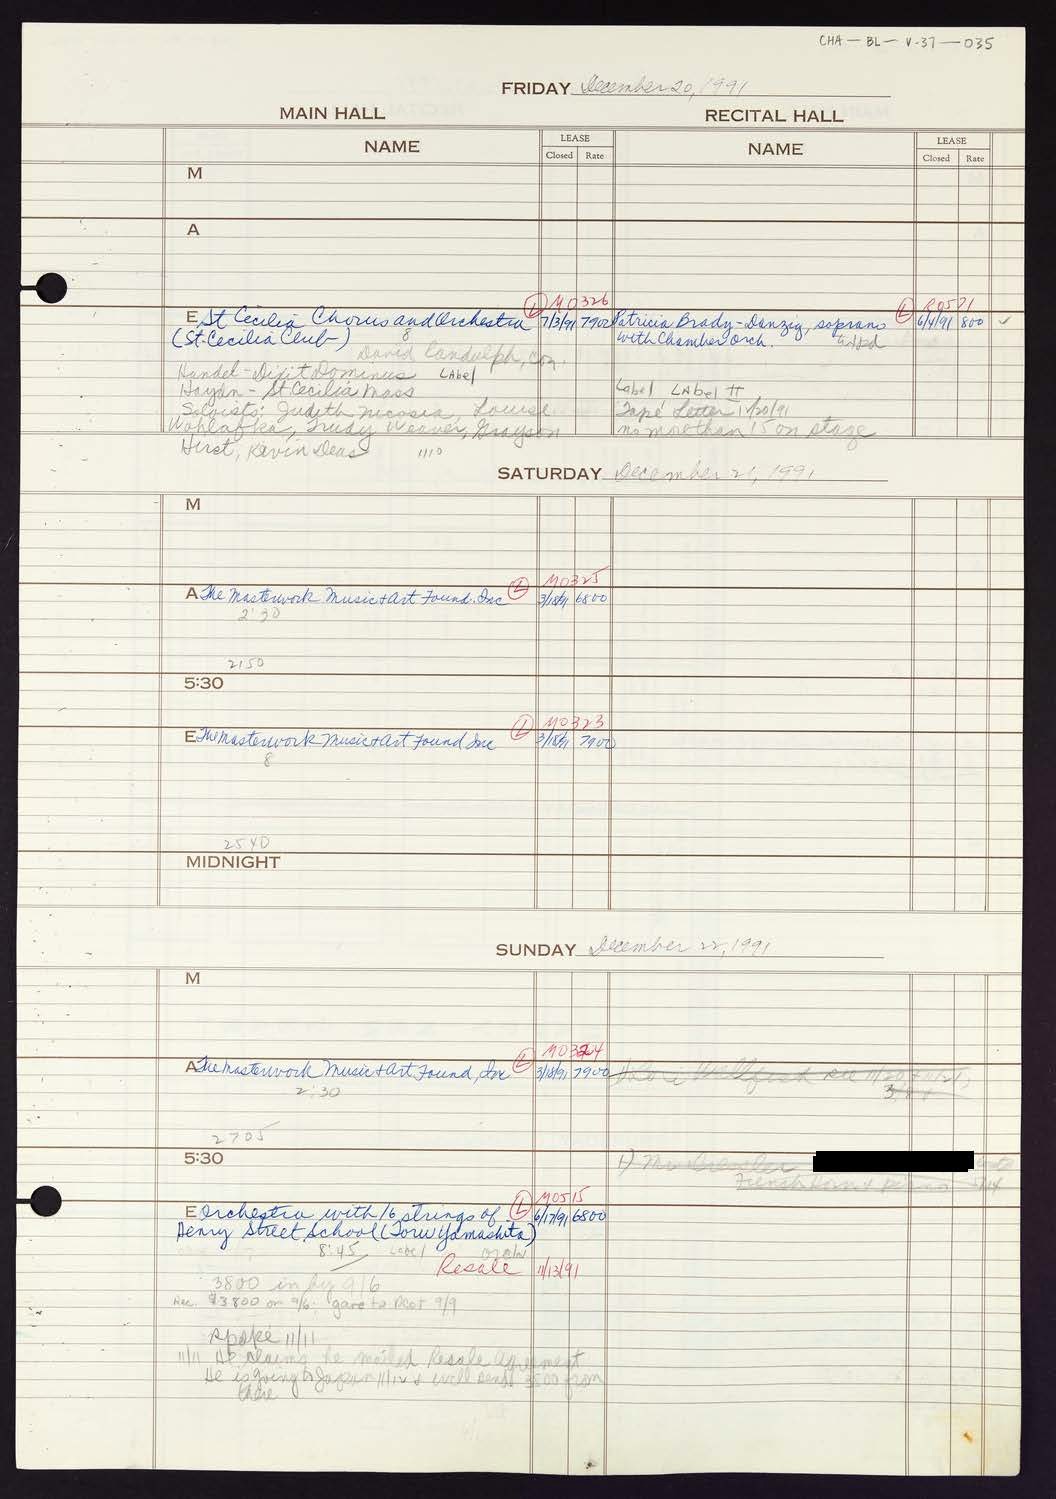 CHA - BL - V-37 - 035
FRIDAY December 20, 1991
MAIN HALL RECITAL HALL
NAME LEASE NAME LEASE
Closed Rate Closed Rate
M
A
L M0326 L R0521
E St Cecilia Chorus and Orchestra 7/3/91 7900 Patricia Brady-Danzig, soprano 6/4/91 800
(St. Cecilia Club) 8 with Chamber Orch.
David Randolph, Con.
Handel - Dixit Dominus Label
Haydn - St Cecilia Mass Label Label II
Soloists: Judith Nicosia, Louise Tape Letter 11/20/91
Wohlafka, Trudy Weaver, Grayson no more than 15 on stage
Hirst, Kevin Deas 1110
SATURDAY December 21, 1991
M
L M0325
A The Masterwork Music & Art Found. Inc 3/18/91 6800
2:30
2150
5:30
L M0323
E The Masterwork Music & Art Found Inc 3/18/91 7900
8
2540
MIDNIGHT
SUNDAY December 22, 1991
M
L M0324
A The Masterwork Music & Art Found, Inc 3/18/91 7900 1) Lori
2:30
2705
5:30 1) Mr
French Horn & piano
L M0515
E Orchestra with 16 strings of 6/17/91 6800
Henry Street School (Toru Yamashita)
8:45 Label
Resale 11/13/91
3800 in by 9/6
Rec. $3800 on 9/6; gave to Acct 9/9
Spoke 11/11
11/11 He claims he mailed Resale Agreement
He is going to Japan & will send 3500 from
there